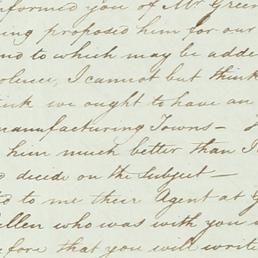 formed you of Mr Green
ing proposed him for our
and to which may be adde
olence, I cannot but think
ink we ought to have an
manufacturing Towns —
him much better than I
decide on the Subject —
ed to me their Agent at G
ellen who was with you
fore that you will write